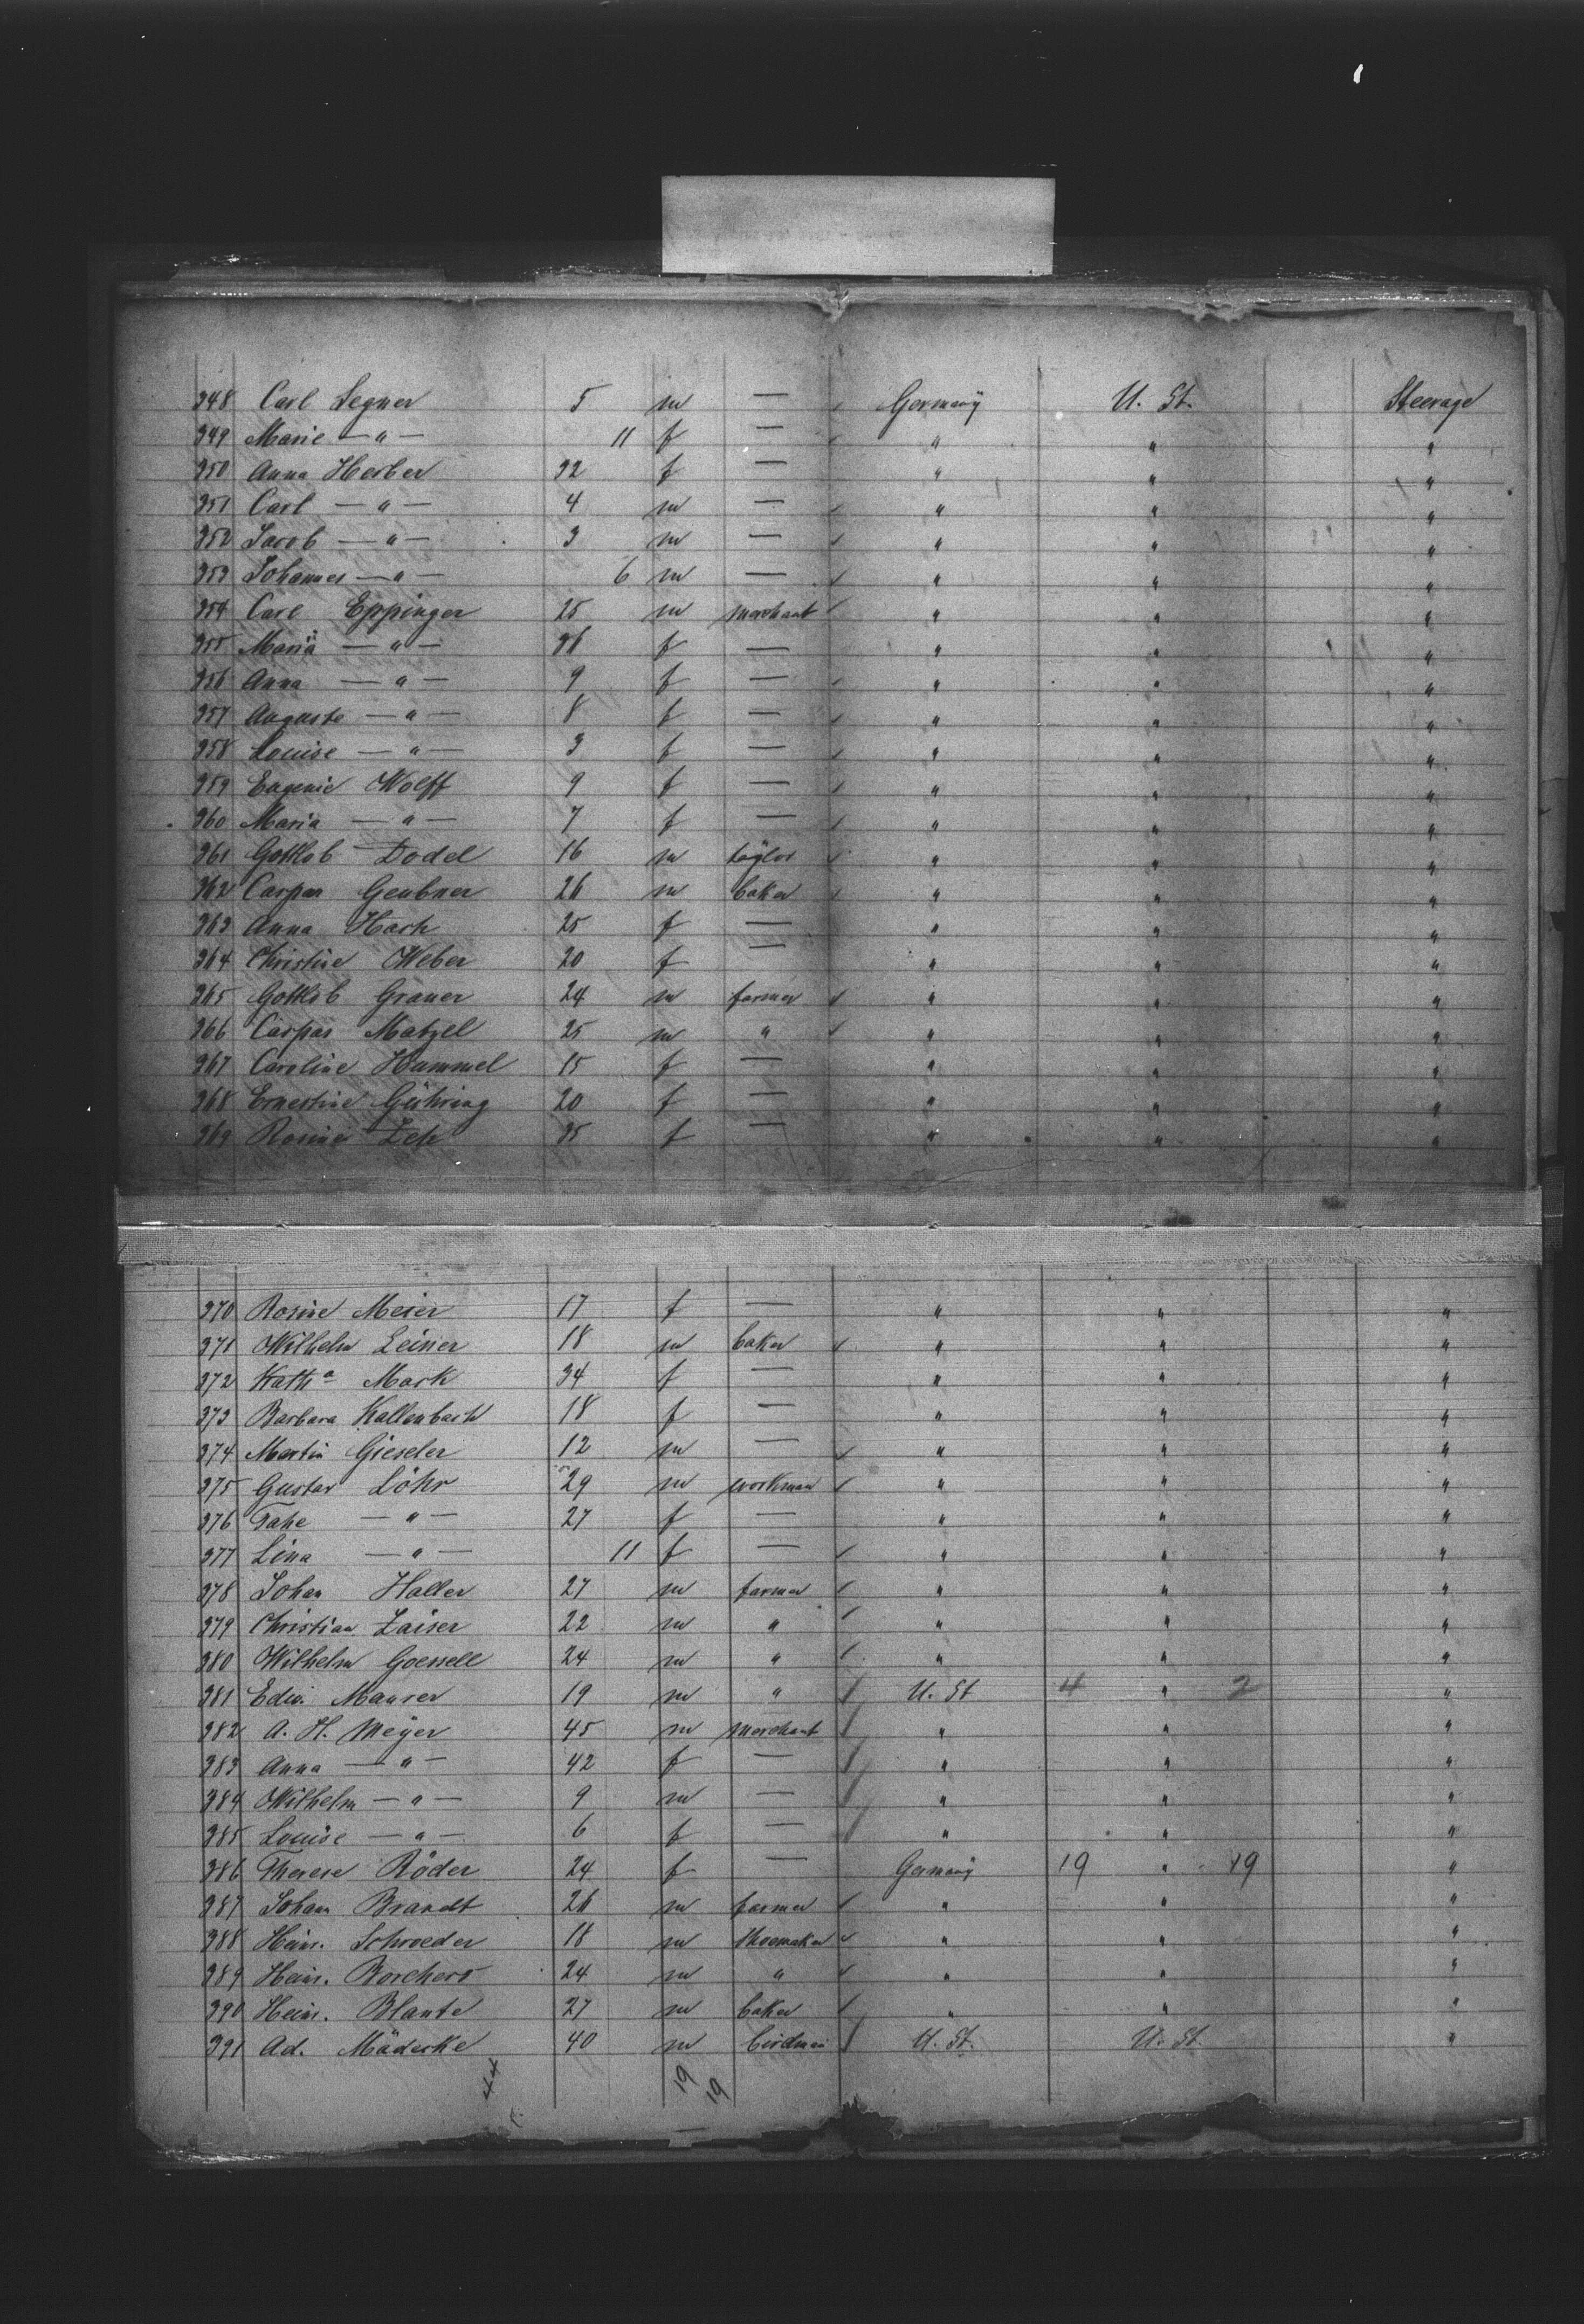 348 Carl Segner 5 m — Germany U. St. Steerage
349 Marie — " — 11 f — " " "
350 Anna Herber 32 f — " " "
351 Carl — " — 4 m — " " "
352 Jacob — " — 3 m — " " "
353 Johannes — " — 6 m — " " "
354 Carl Eppinger 25 m merchant " " "
355 Maria — " — 36 f — " " "
356 Anna — " — 9 f — " " "
357 Auguste — " — 8 f — " " "
358 Louise — " — 3 f — " " "
359 Eugenie Wolff 9 f — " " "
360 Maria — " — 7 f — " " "
361 Gottlob Dodel 16 m taylor " " "
362 Caspar Geubner 26 m baker " " "
363 Anna Hach 25 f — " " "
364 Christine Weber 20 f — " " "
365 Gottlob Grauer 24 m farmer " " "
366 Caspar Matzel 25 m " " " "
367 Caroline Hummel 15 f — " " "
368 Ernestine Gühring 20 f — " " "
369 Rosine 35 f — " " "
370 Rosine Meier 17 f — " " "
371 Wilhelm Leiner 18 m baker " " "
372 Kath<sup>a</sup> Mark 34 f — " " "
373 Barbara Kallenbach 18 f — " " "
374 Martin Gieseler 12 m — " " "
375 Gustav Löhr 29 m workman " " "
376 Tahe — " — 27 f — " " "
377 Lina — " — 11 f — " " "
378 Johan Haller 27 m farmer " " "
379 Christian Zaiser 22 m " " " "
380 Wilhelm Goessele 24 m " " " "
381 Edw. Manser 19 m " U. St 4 " 2 "
382 A. H. Meÿer 45 m merchant " " "
383 Anna — " — 42 f — " " "
384 Wilhelm — " — 9 m — " " "
385 Louise — " — 6 f — " " "
386 Therese Röder 24 f — Germany 19 " 19 "
387 Johann Brandt 26 m farmer " " "
388 Heinr. Schroeder 18 m shoemaker " " "
389 Heinr. Borchers 24 m " " " "
390 Heinr. Blante 27 m baker " " "
391 Ad. Mädecke 40 m birdman U. St. U. St. "
44 19 19